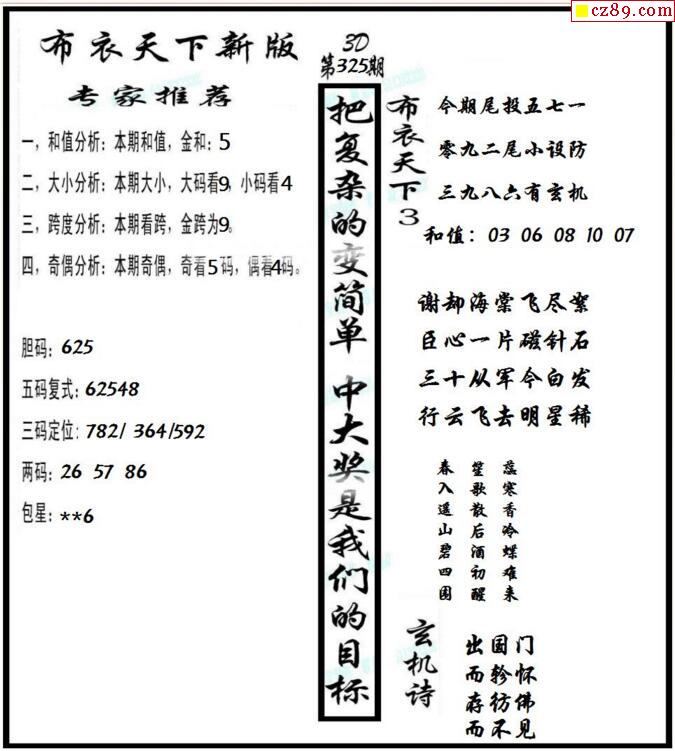 cz89.com
布衣天下新版
专家推荐
一，和值分析：本期和值，金和：5
二，大小分析：本期大小，大码看9，小码看4
三，跨度分析：本期看跨，金跨为9。
四，奇偶分析：本期奇偶，奇看5码，偶看4码。
胆码：625
五码复式：62548
三码定位：782/ 364/592
两码：26 57 86
包星：**6
3D
第325期
把复杂的变简单 中大奖是我们的目标
布衣天下3
今期尾投五七一
零九二尾小设防
三九八六有玄机
和值：03 06 08 10 07
谢却海棠飞尽絮
臣心一片磁针石
三十从军今白发
行云飞去明星稀
春入遥山碧四围
笙歌散后酒初醒
蕊寒香冷蝶难来
玄机诗
出国门
而轸怀
存彷佛
而不见